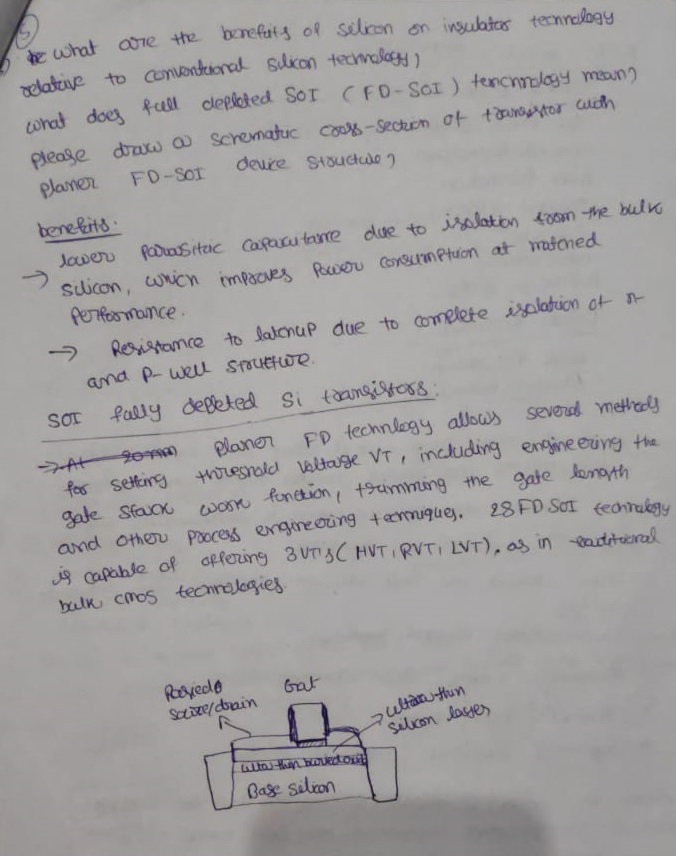 5
what are the benefits of silicon on insulator technology
relative to conventional silicon technology,
what does full depleted SOI (FD-SOI) technology mean?
please draw a schematic cross-section of transistor with
planer FD-SOI device structure?
benefits:
lower parasitic capacitance due to isolation from the bulk
→ silicon, which improves power consumption at matched
performance.
→ Resistance to latchup due to complete isolation of n
and P-well structure.
SOI fully depleted Si transistors:
→ At 20nm planer FD technlogy allows several methods
for setting threshold voltage VT, including engineering the
gate stack work function, trimming the gate length
and other process engineering techniques. 28FD SOI technology
is capable of offering 3 VT's (HVT, RVT, LVT), as in traditional
bulk cmos technologies.
Raised Gat
source/drain ultra-thin
silicon layer
ultra thin buried oxide
Base silicon